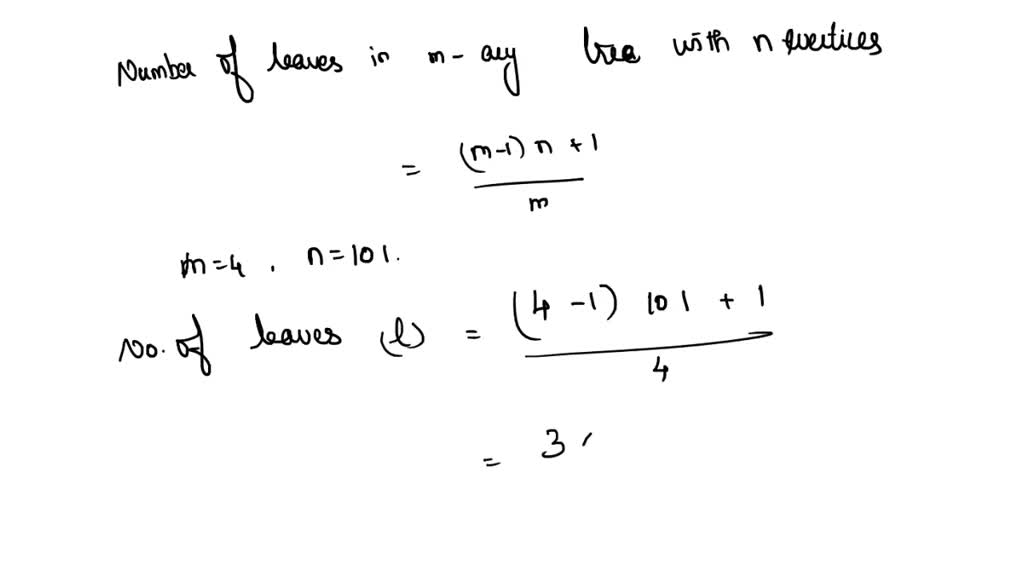 Number of leaves in m-ary tree with n vertices
= (m-1) n + 1 / m
m=4, n=101.
No. of leaves (l) = (4-1) 101 + 1 / 4
= 3 (